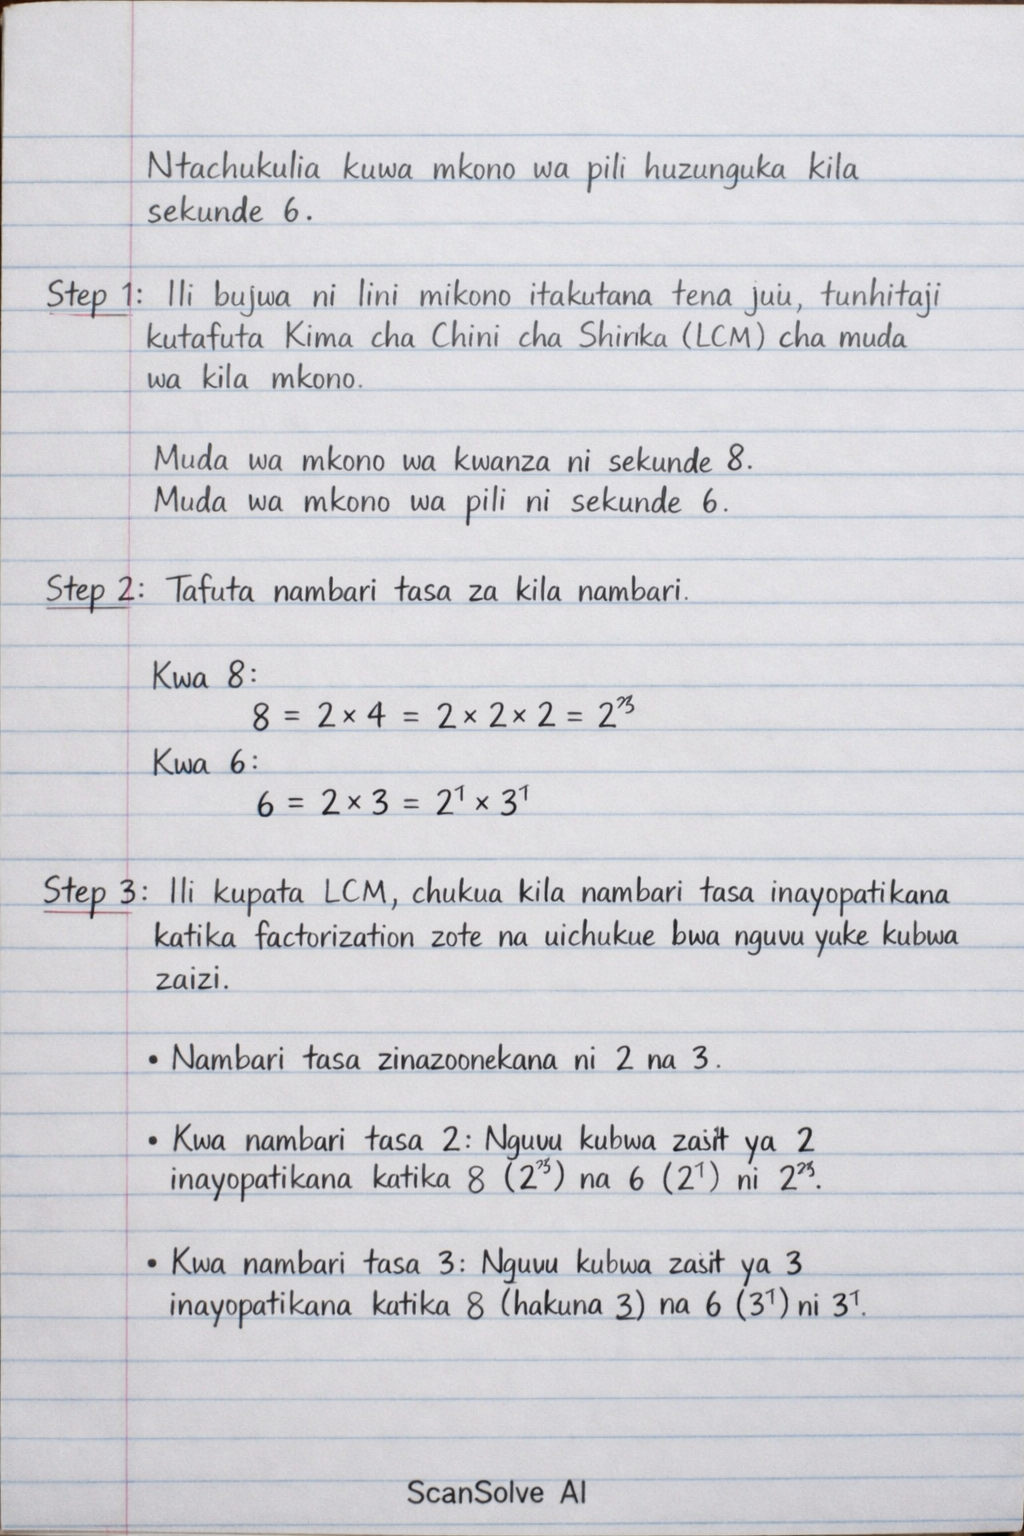 Ntachukulia kuwa mkono wa pili huzunguka kila
sekunde 6.
Step 1: Ili bujwa ni lini mikono itakutana tena juu, tunhitaji
kutafuta Kima cha Chini cha Shirika (LCM) cha muda
wa kila mkono.
Muda wa mkono wa kwanza ni sekunde 8.
Muda wa mkono wa pili ni sekunde 6.
Step 2: Tafuta nambari tasa za kila nambari.
Kwa 8:
8 = 2 × 4 = 2 × 2 × 2 = 2³
Kwa 6:
6 = 2 × 3 = 2¹ × 3¹
Step 3: Ili kupata LCM, chukua kila nambari tasa inayopatikana
katika factorization zote na uichukue bwa nguvu yuke kubwa
zaizi.
• Nambari tasa zinazoonekana ni 2 na 3.
• Kwa nambari tasa 2: Nguvu kubwa ya 2
inayopatikana katika 8 (2³) na 6 (2¹) ni 2³.
• Kwa nambari tasa 3: Nguvu kubwa ya 3
inayopatikana katika 8 (hakuna 3) na 6 (3¹) ni 3¹.
ScanSolve AI